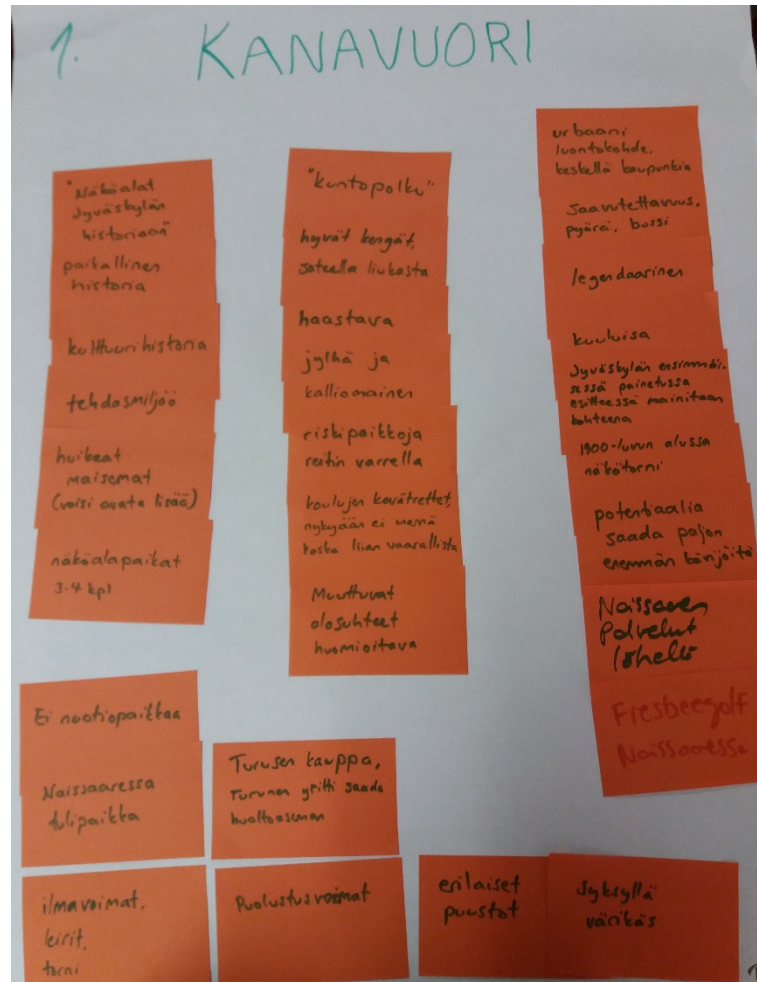 1. KANAVUORI
"Näköalat
Jyväskylän
historiaan"
paikallinen
historia
kulttuurihistoria
tehdasmiljöö
huikeat
maisemat
(voisi avata lisää)
näköalapaikat
3-4 kpl
"kuntopolku"
hyvät kengät,
sateella liukasta
haastava
jylhä ja
kalliomainen
riskipaikkoja
reitin varrella
koulujen kevätretket,
nykyään ei mennä
koska liian vaarallista
Muuttuvat
olosuhteet
huomioitava
urbaani
luontokohde.
keskellä kaupunkia
Saavutettavuus.
pyörä, bussi
legendaarinen
kuuluisa
Jyväskylän ensimmäi-
sessä painetussa
esitteessä mainitaan
kohteena
1900-luvun alussa
näkötorni
potentiaalia
saada paljon
enemmän kävijöitä
Naissaaren
palvelut
lähellä
Fresbeegolf
Naissaaressa
Ei nuotiopaikkaa
Naissaaressa
tulipaikka
Turusen kauppa,
Turunen yritti saada
huoltoaseman
ilmavoimat,
leirit,
torni
Puolustusvoimat
erilaiset
puustot
Syksyllä
värikäs